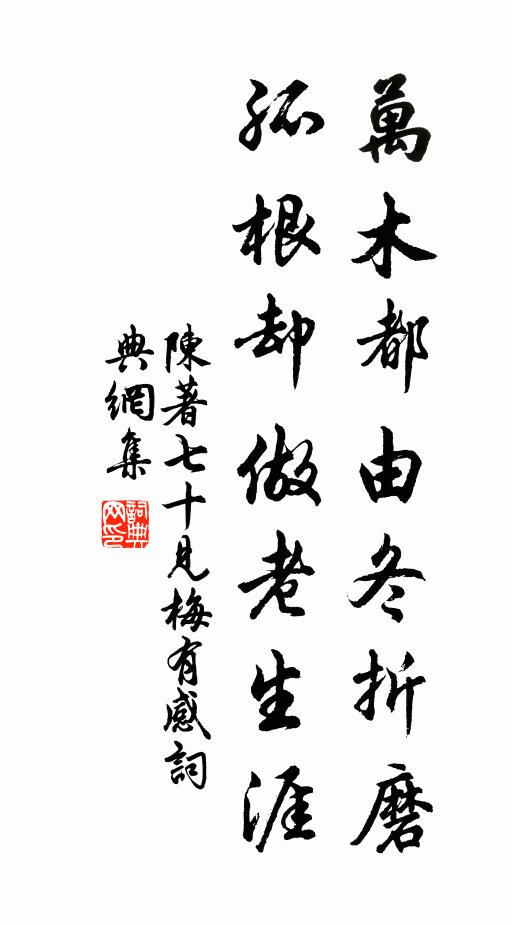 萬木都由冬折磨
孤根却做老生涯
陳著七十見梅有感詞
典網集
詞典
网印